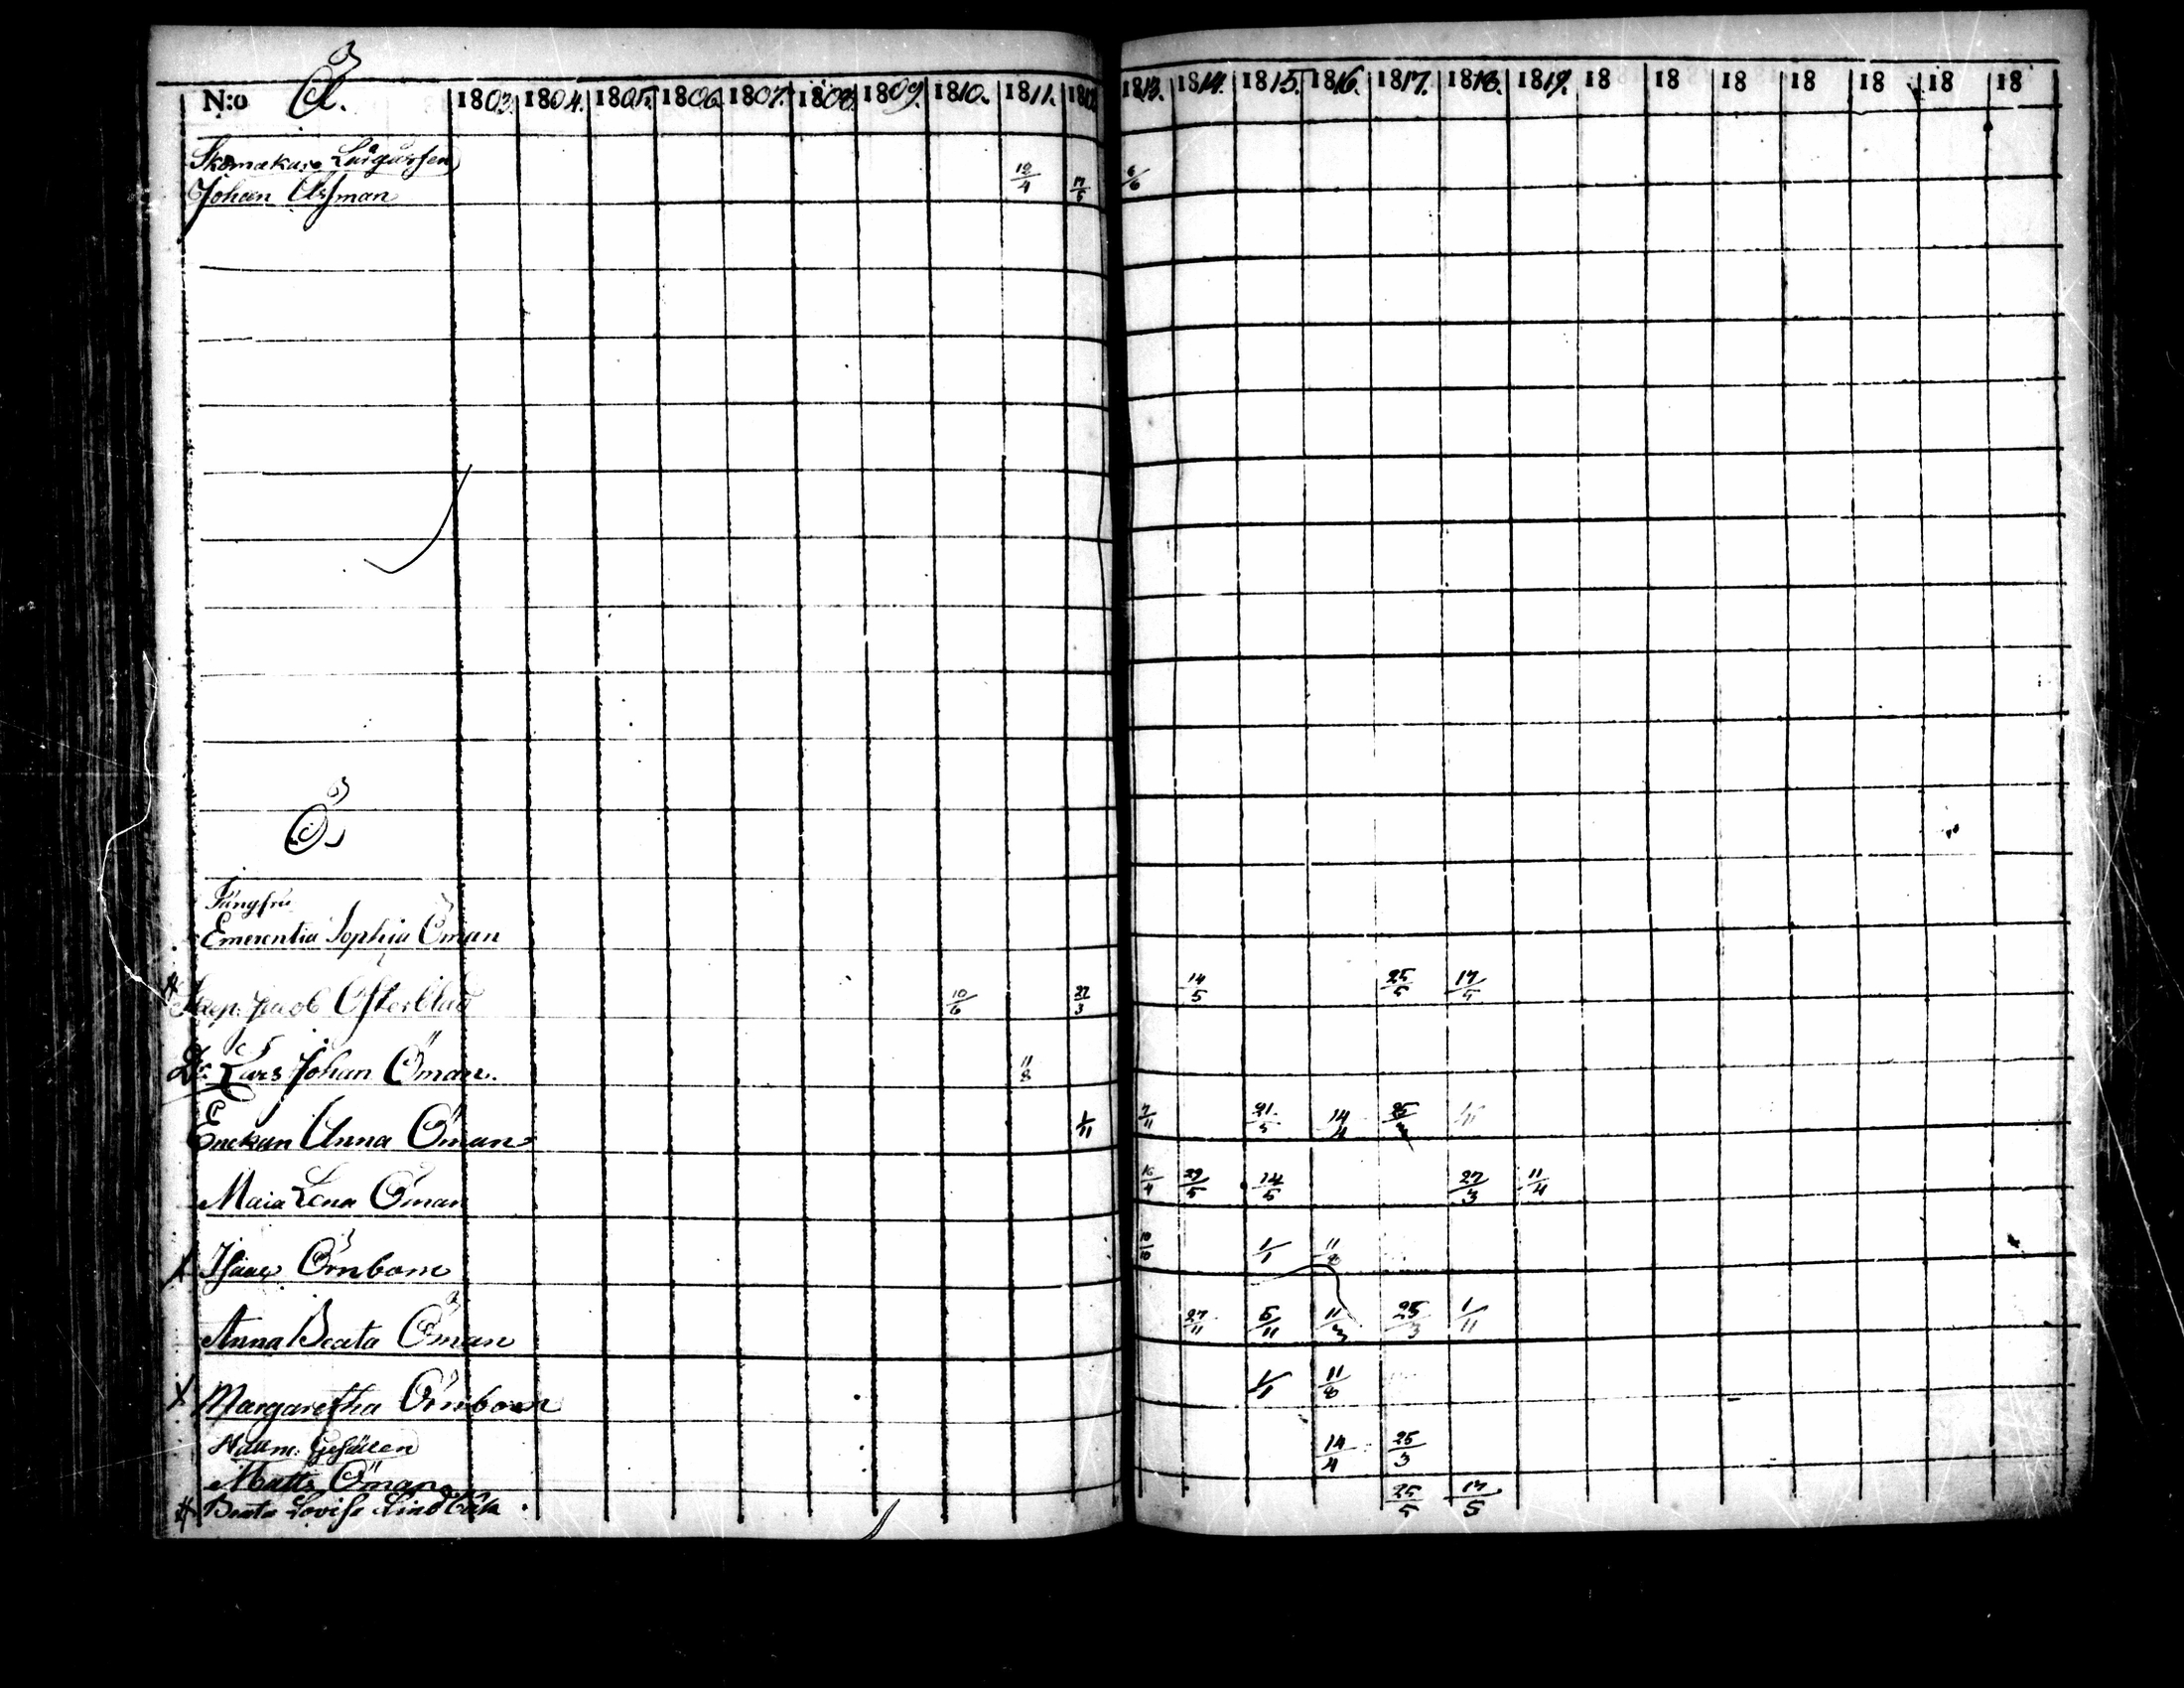 N:o Å. 1803. 1804. 1805. 1806. 1807. 1808. 1809. 1810. 1811. 1812 1813. 1814. 1815. 1816. 1817. 1818. 1819. 18 18 18 18 18 18 18
Skomakare
Johan Åhman 12/4 17/5 6/6
Ö.
Jungfru
Emerentia Sophia Öman
Jacob Österblad 10/6 22/3 14/5 25/5 17/5
Dr. Lars Johan Öman. 11/8
Enckan Anna Öman 1/11 7/11 21/5 14/4 25/3
Maia Lena Öman 16/4 29/5 14/5 27/3 11/4
Isaac Örnbom 10/10 1/1 11/8
Anna Beata Öman 27/11 5/11 11/3 25/3 1/11
Margaretha Örnbom 1/1 11/8
Gesällen 14/4 25/3
Matts Öman
Beata Lovisa 25/5 17/5